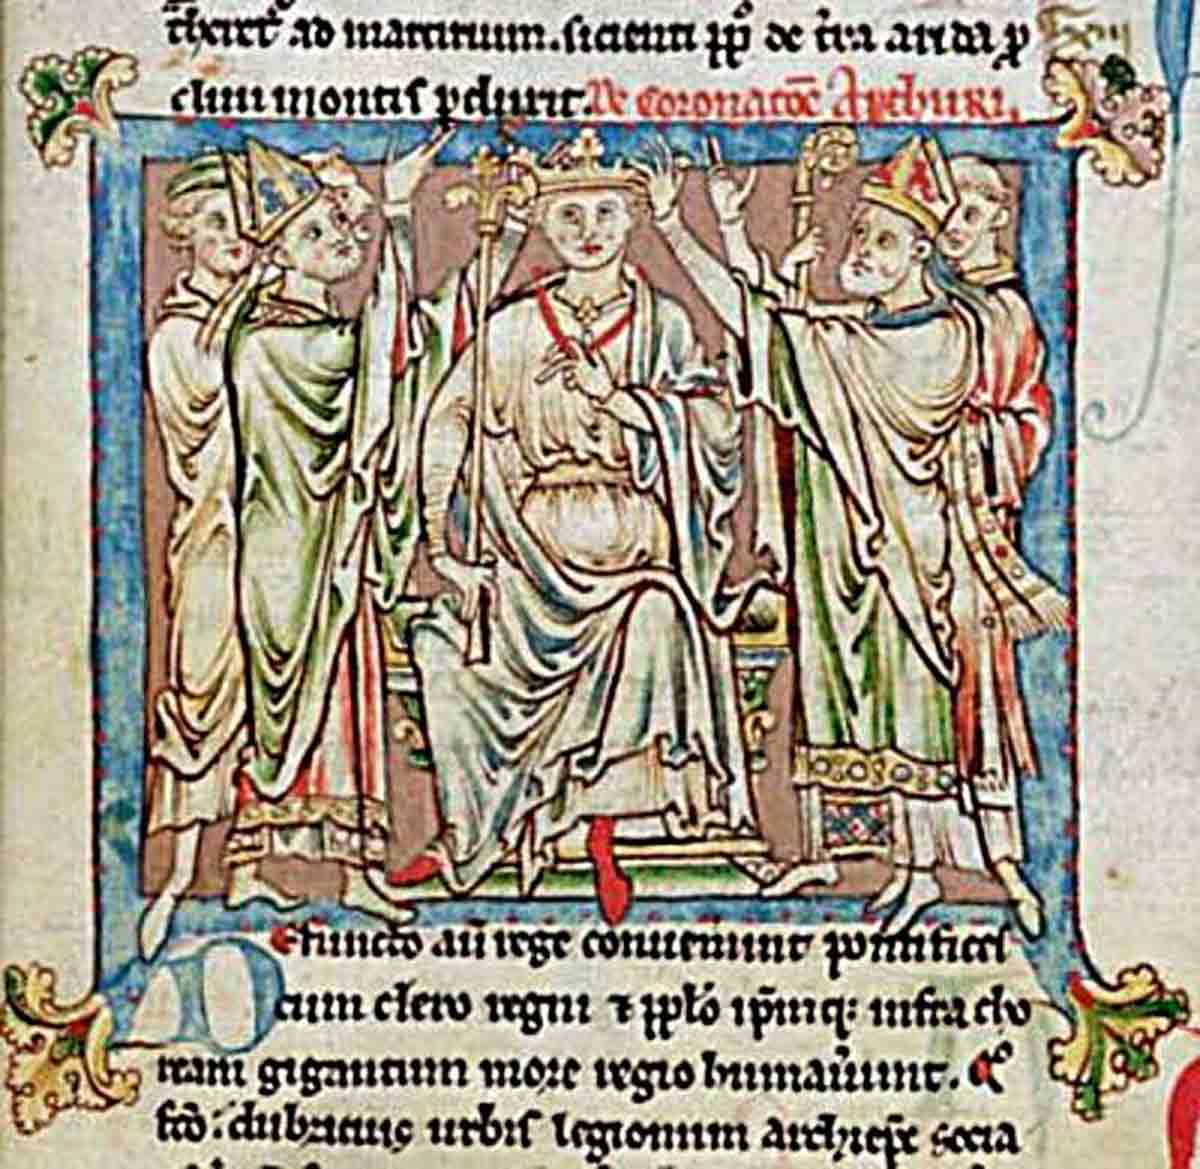 theret ad martirium. sicienti pp̄o de t'ra arida p
cliui montis pdurit. De coronatōe Arthuri.
Defuncto aū rege conuenerunt pontifices
cum clero regni ⁊ pp̄lo ip̄mq; infra cho
ream gigantum more regio humauerunt. Qo
fcō: dubricius urbis legionum archiep̄c socia